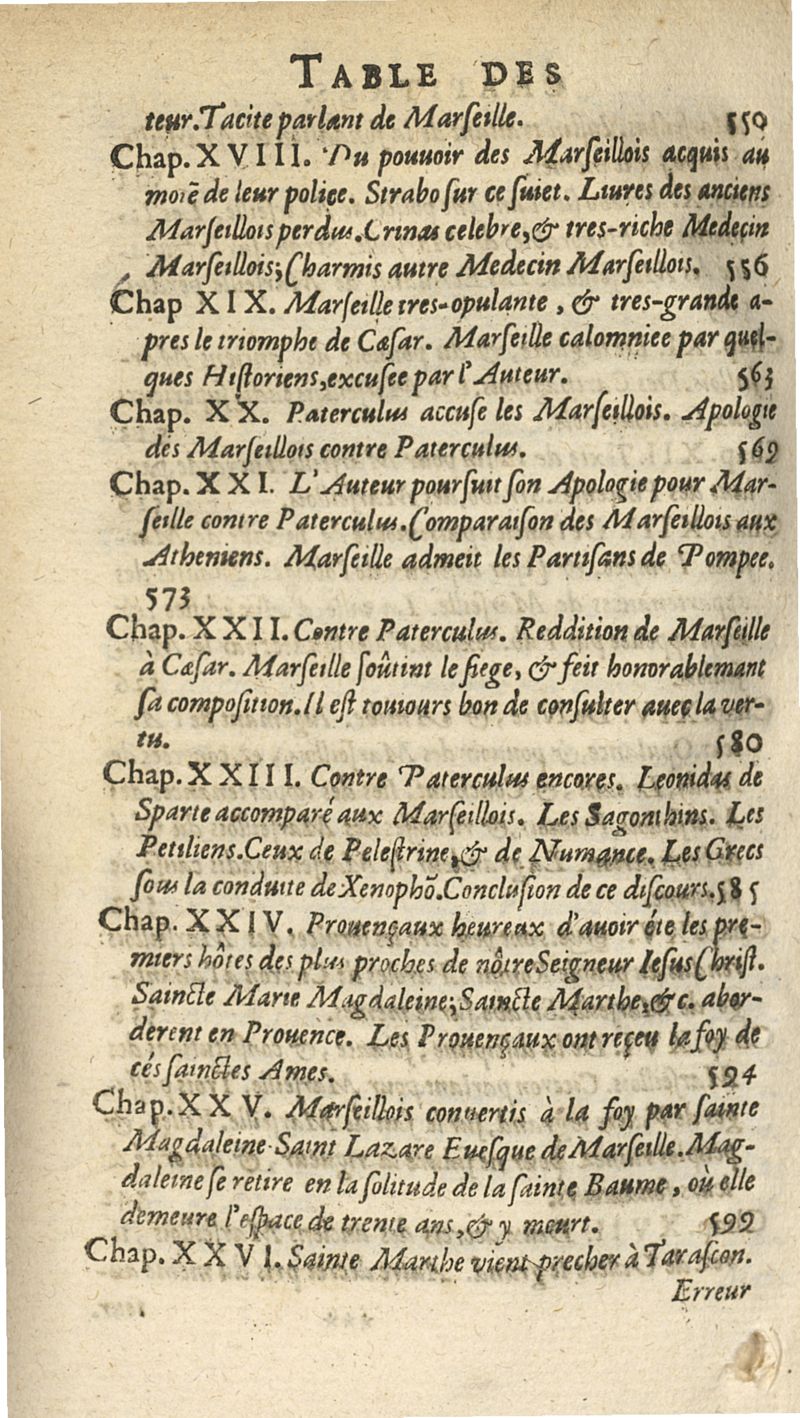 TABLE DES
teur. Tacite parlant de Marſeille. 550
Chap. XVIII. Du pouuoir des Marſeillois acquis au
moiẽ de leur police. Strabo ſur ce ſuiet. Liures des anciens
Marſeillois perdus. Crinas celebre, & tres-riche Medecin
Marſeillois; Charmis autre Medecin Marſeillois. 556
Chap XIX. Marſeille tres-opulante, & tres-grande a-
pres le triomphe de Cæſar. Marſeille calomniee par quel-
ques Hiſtoriens, excuſee par l'Auteur. 563
Chap. XX. Paterculus accuſe les Marſeillois. Apologie
des Marſeillois contre Paterculus. 569
Chap. XXI. L'Auteur pourſuit ſon Apologie pour Mar-
ſeille contre Paterculus. Comparaiſon des Marſeillois aux
Atheniens. Marſeille admeit les Partiſans de Pompee.
573
Chap. XXII. Contre Paterculus. Reddition de Marſeille
à Cæſar. Marſeille ſoûtint le ſiege, & feit honorablemant
ſa compoſition. Il eſt touiours bon de conſulter auec la ver-
tu. 580
Chap. XXIII. Contre Paterculus encores. Leonidas de
Sparte accomparé aux Marſeillois. Les Sagonthins. Les
Petiliens. Ceux de Peleſtrine, & de Numance. Les Grecs
ſous la conduite de Xenophõ. Concluſion de ce diſcours. 585
Chap. XXIV. Prouençaux heureux d'auoir éte les pre-
miers hôtes des plus proches de nôtre Seigneur Ieſus Chriſt.
Saincte Marie Magdaleine; Saincte Marthe, &c. abor-
derent en Prouence. Les Prouençaux ont reçeu la foy de
cés ſainctes Ames. 594
Chap. XXV. Marſeillois conuertis à la foy par ſainte
Magdaleine. Saint Lazare Eueſque de Marſeille. Mag-
daleine ſe retire en la ſolitude de la ſainte Baume, où elle
demeure l'eſpace de trente ans, & y meurt. 599
Chap. XXVI. Sainte Marthe vient precher à Taraſcon.
Erreur